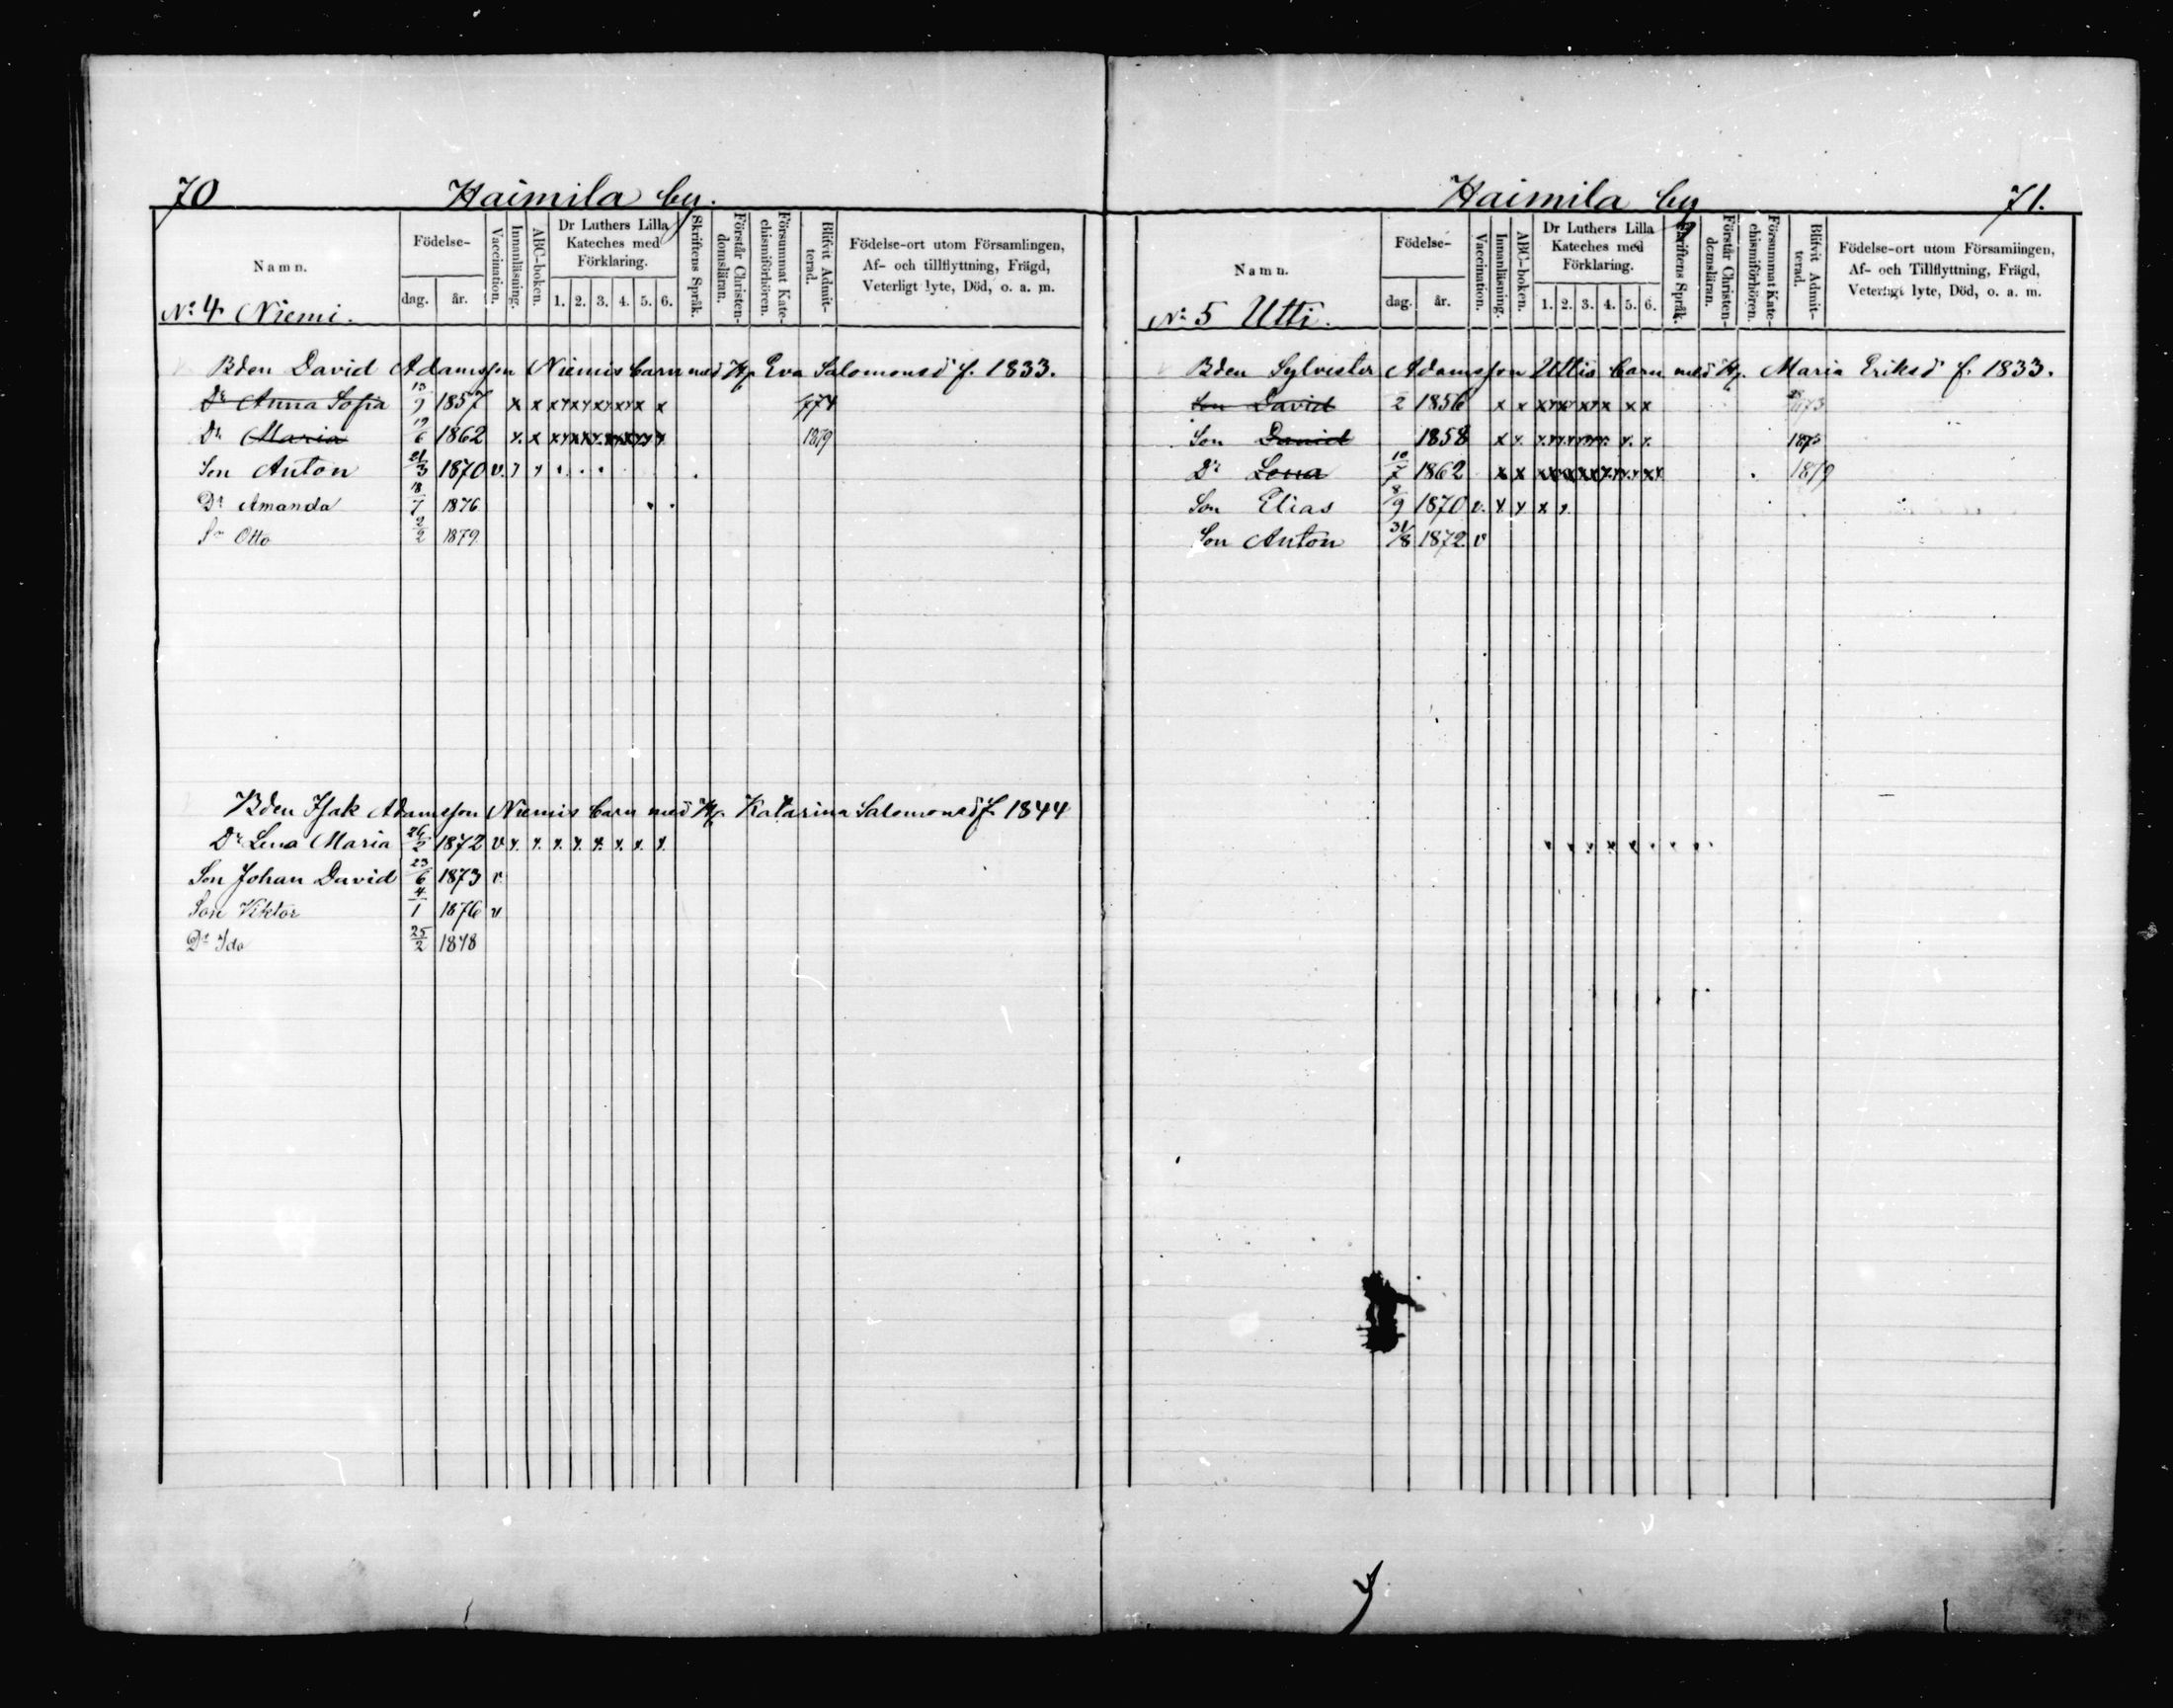 70 Haimila by.
Namn. Födelse- dag. år. Vaccination. Innanläsning. ABC-boken. Dr Luthers Lilla Kateches med Förklaring. 1. 2. 3. 4. 5. 6. Skriftens Språk. Förstår Christendomsläran. Försummat Katechismiförhören. Blifvit Admitterad. Födelse-ort utom Församlingen, Af- och tillflyttning, Frägd, Veterligt lyte, Död, o. a. m.
No 4 Niemi.
Bden David Adamsson Niemis barn med Hu Eva Salomonsd f. 1833.
Dr Anna Sofia 13/9 1857 x x x x x x x x x x x 774
Dr Maria 19/6 1862 x x x x x x x x x x 1879
Son Anton 21/3 1870 v.
Dr Amanda 18/7 1876
Sn Otto 2/2 1879
Bden Isak Adamsson Niemis barn med Hu. Katarina Salomonsd f. 1844
Dr Lena Maria 26/2 1872 v x x x x x x x x
Son Johan David 23/6 1873 v
Son Viktor 4/1 1876 v
Dr Ida 25/2 1878
Haimila by 71.
Namn. Födelse- dag. år. Vaccination. Innanläsning. ABC-boken. Dr Luthers Lilla Kateches med Förklaring. 1. 2. 3. 4. 5. 6. Skriftens Språk. Förstår Christendomsläran. Försummat Katechismiförhören. Blifvit Admitterad. Födelse-ort utom Församlingen, Af- och Tillflyttning, Frägd, Veterligt lyte, Död, o. a. m.
No 5 Utti.
Bden Sylvester Adamsson Uttis barn med Hu. Maria Eriksd f. 1833.
Son David 2 1856 x x x x x x x x x
Son David 1858 x x x x x x x x
Dr Lena 10/7 1862 x x x x x x x x 1879
Son Elias 8/9 1870 v. x x x x
Son Anton 31/8 1872 v